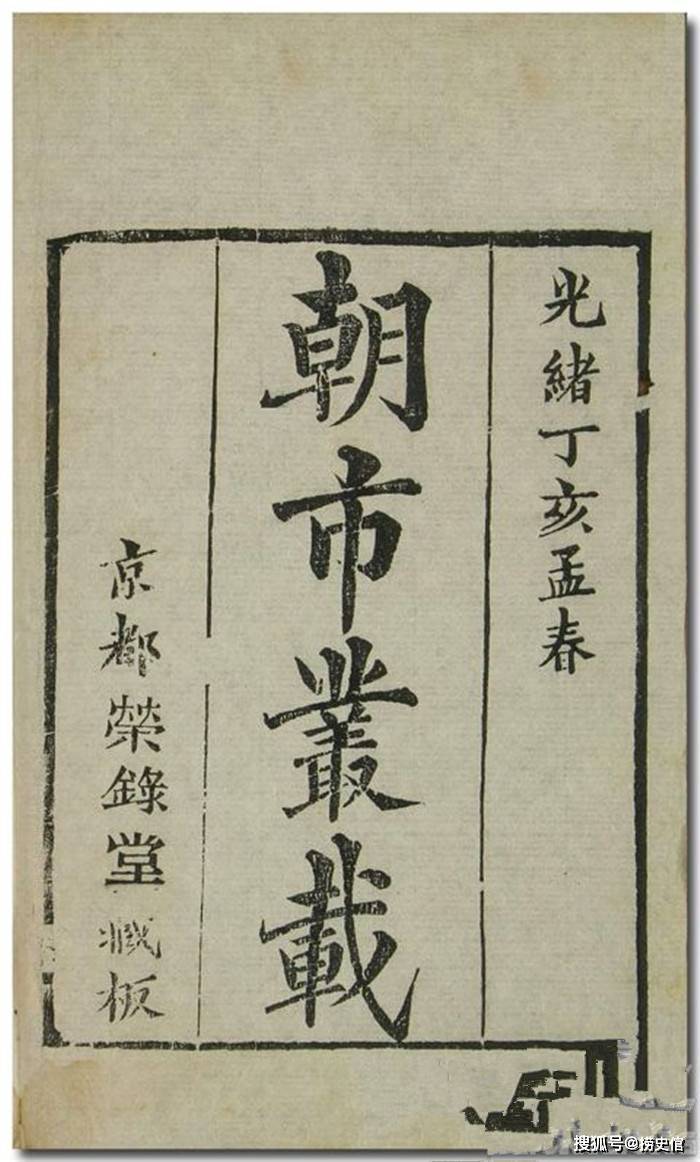 光緒丁亥孟春
朝市叢載
京都榮錄堂藏板
搜狐号@捞史官